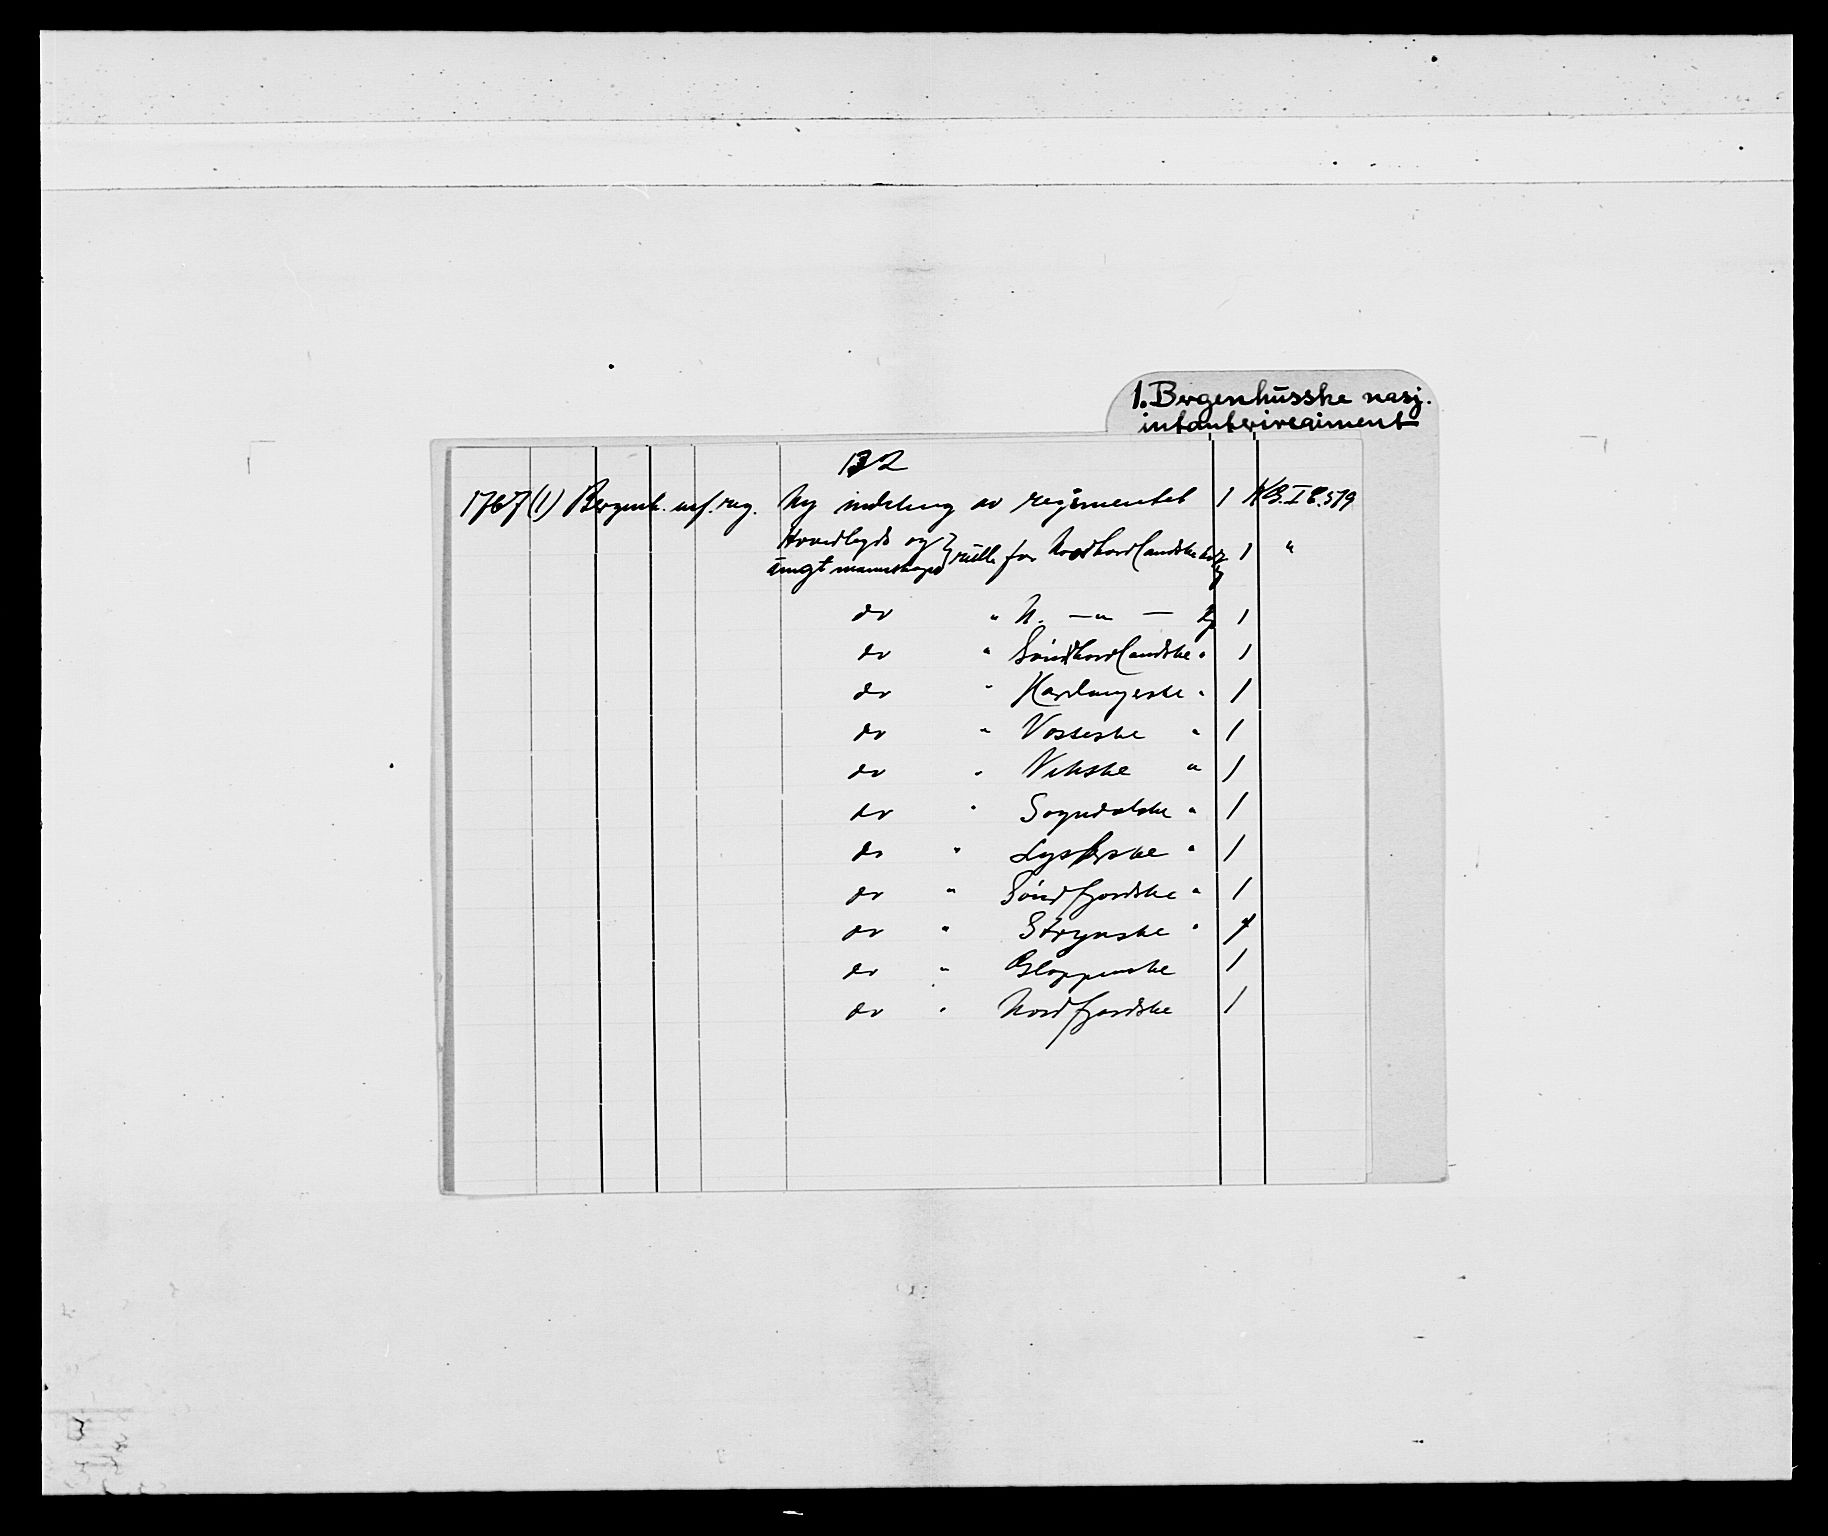 1. Bergenhusske nasj.
infanteriregiment
132
1767 (1) Bergenh. inf. reg. Ny inndeling av regimentet 1 KB.I E.519
Hovedlegds og
ungt mannskaps } rulle for Nordhordlandske 1 "
do " N. — " — kp 1
do " Søndhordlandske " 1
do " Hardangerske " 1
do " Vosseske " 1
do " Vikske " 1
do " Sogndalske " 1
do " Lysterske " 1
do " Søndfjordske " 1
do " Strynske " 1
do " Gloppenske 1
do " Nordfjordske 1